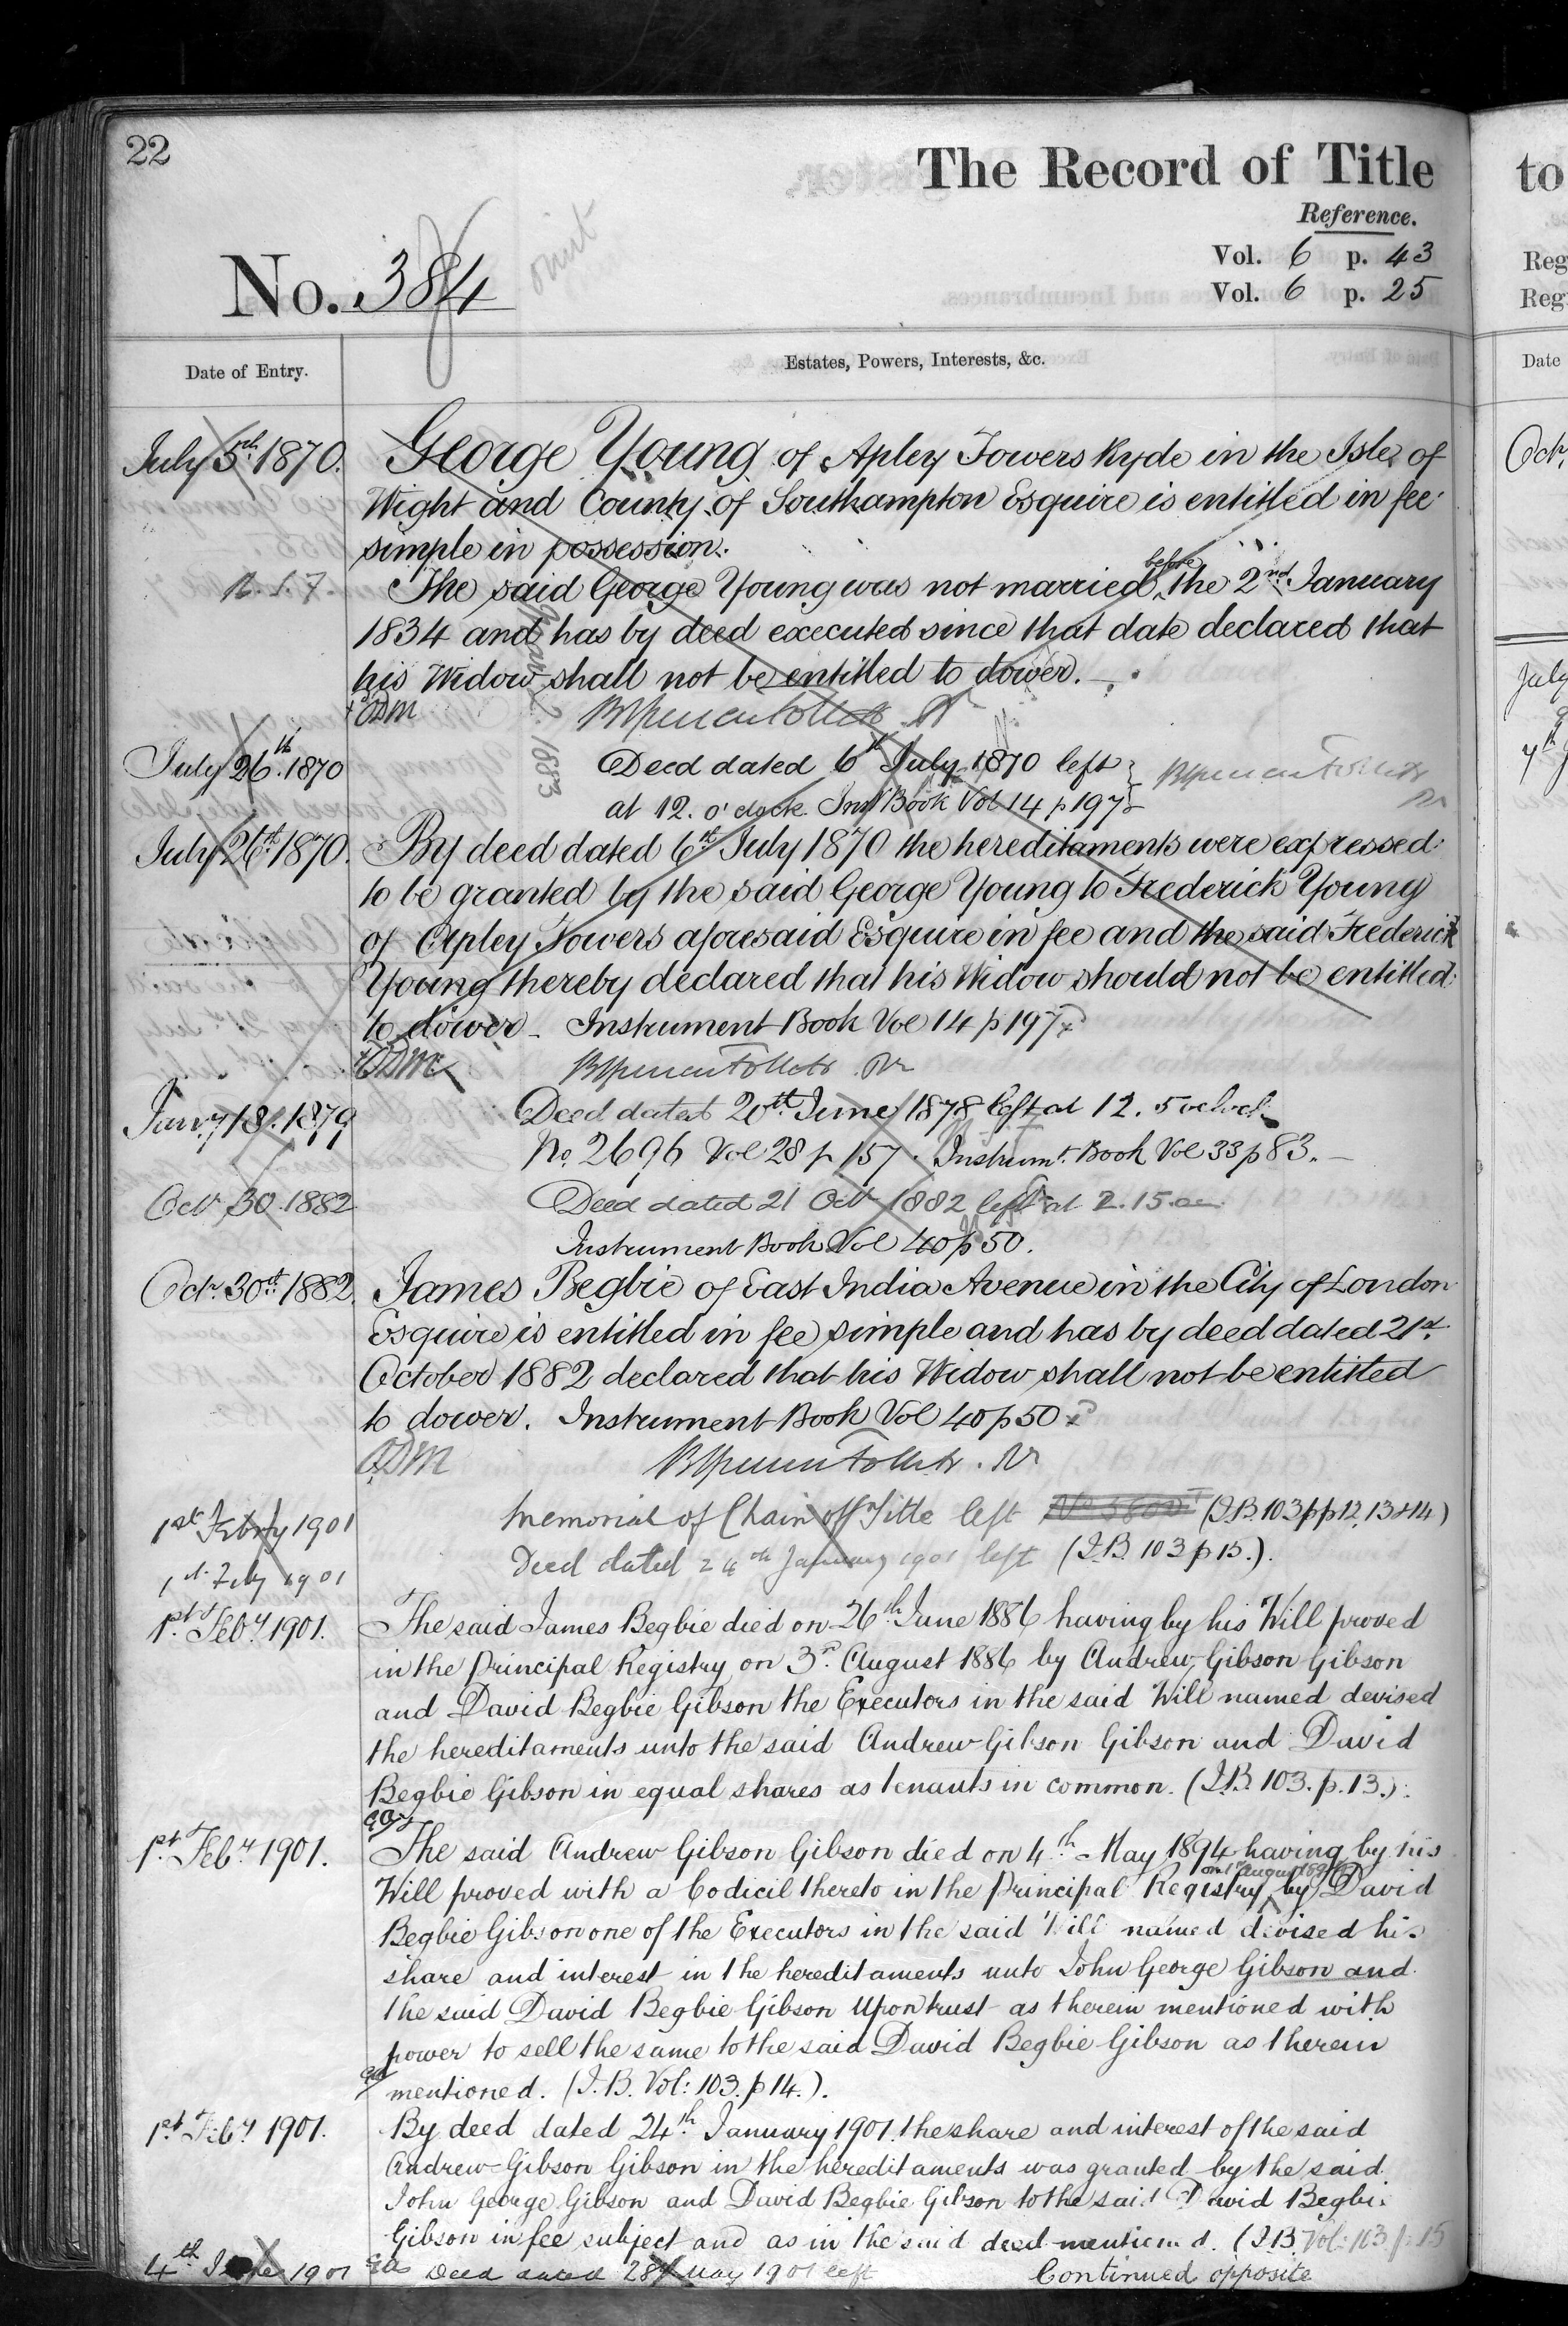 22
The Record of Title
Reference.
Vol. 6 p. 43
Vol. 6 p. 25
No. 384
omit
Date of Entry.
Estates, Powers, Interests, &c.
July 5th 1870.
George Young of Apley Towers Ryde in the Isle of
Wight and County of Southampton Esquire is entitled in fee
simple in possession.
The said George Young was not married before the 2nd January
1834 and has by deed executed since that date declared that
his Widow shall not be entitled to dower.
1883
July 26th 1870
Deed dated 6th July 1870 left
at 12. o'clock. Inst Book Vol 14 p 197
July 26th 1870.
By deed dated 6th July 1870 the hereditaments were expressed
to be granted by the said George Young to Frederick Young
of Apley Towers aforesaid Esquire in fee and the said Frederick
Young thereby declared that his Widow should not be entitled
to dower - Instrument Book Vol 14 p 197
Jany 18. 1879
Deed dated 20th June 1878 left at 12. 5 oclock
No. 2696 Vol 28 p 157. Instrumt. Book Vol 33 p 83. -
Oct 30. 1882
Deed dated 21 Oct 1882 left at 2.15.
Instrument Book Vol 40 p 50.
Oct. 30th 1882.
James Begbie of East India Avenue in the City of London
Esquire is entitled in fee simple and has by deed dated 21st
October 1882 declared that his Widow shall not be entitled
to dower. Instrument Book Vol 40 p 50
1st Febry 1901
Memorial of Chain of Title left (I.B. 103 pp 12, 13 & 14)
1st Feby 1901
Deed dated 24th January 1901 left (I.B. 103 p 15.).
1st Feby 1901.
The said James Begbie died on 26th June 1886 having by his Will proved
in the Principal Registry on 3rd August 1886 by Andrew Gibson Gibson
and David Begbie Gibson the Executors in the said Will named devised
the hereditaments unto the said Andrew Gibson Gibson and David
Begbie Gibson in equal shares as tenants in common. (I.B. 103. p. 13.).
1st Feby 1901.
The said Andrew Gibson Gibson died on 4th May 1894 having by his
Will proved with a Codicil thereto in the Principal Registry by David
Begbie Gibson one of the Executors in the said Will named devised his
share and interest in the hereditaments unto John George Gibson and
the said David Begbie Gibson Upon trust as therein mentioned with
power to sell the same to the said David Begbie Gibson as therein
mentioned. (I.B. Vol: 103. p 14.).
1st Feby 1901.
By deed dated 24th January 1901. the share and interest of the said
Andrew Gibson Gibson in the hereditaments was granted by the said
John George Gibson and David Begbie Gibson to the said David Begbie
Gibson in fee subject and as in the said deed mentioned. (I.B. Vol: 103 p. 15
4th June 1901
Deed dated 28th May 1901 left
Continued opposite
to
Reg
Reg
Date
Oct.
July